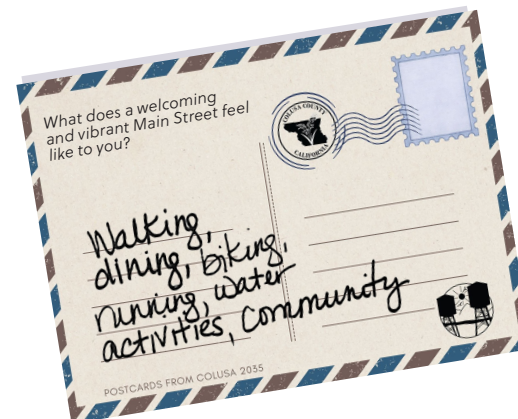 What does a welcoming
and vibrant Main Street feel
like to you?
COLUSA COUNTY
CALIFORNIA
Walking,
dining, biking,
running, water
activities, community
POSTCARDS FROM COLUSA 2035